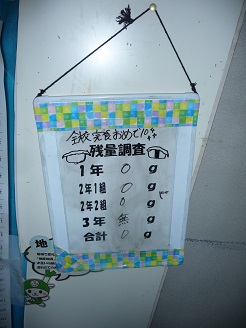 全校完食おめでとう
残量調査
1年 0 g
2年1組 0 g
2年2組 0 g
3年 無 g
合計 0 g
地